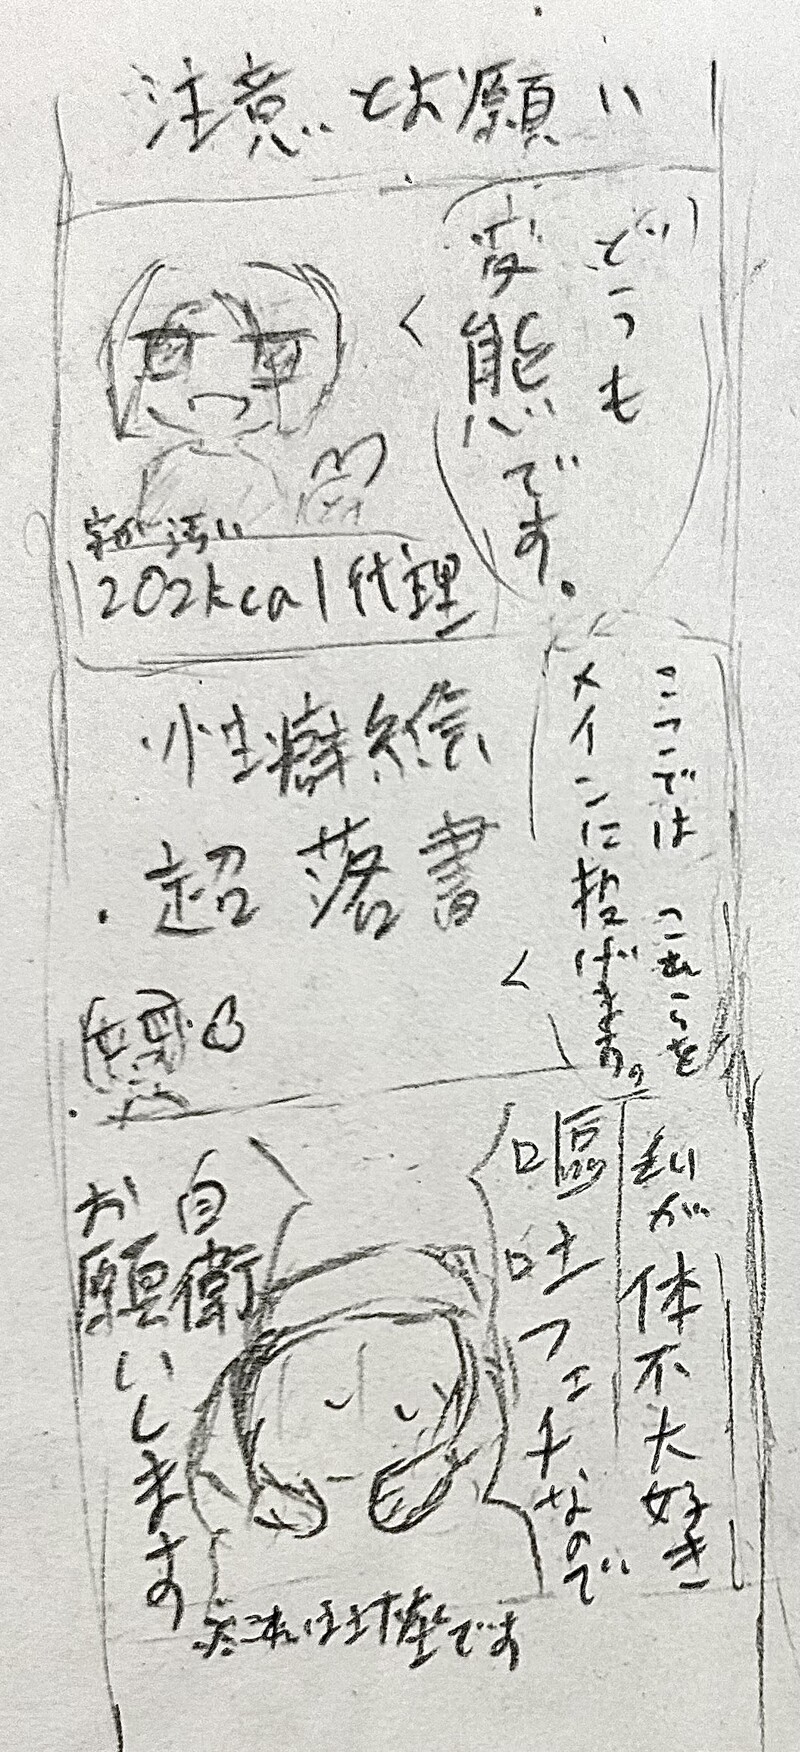 注意とお願い
どうも
変態です。
字が汚い
202kcal代理
ここではこれらを
メインに投げます。
性癖絵
超落書
私が体不大好き
嘔吐フェチなので
自衛
お願いします
※これは土下座です